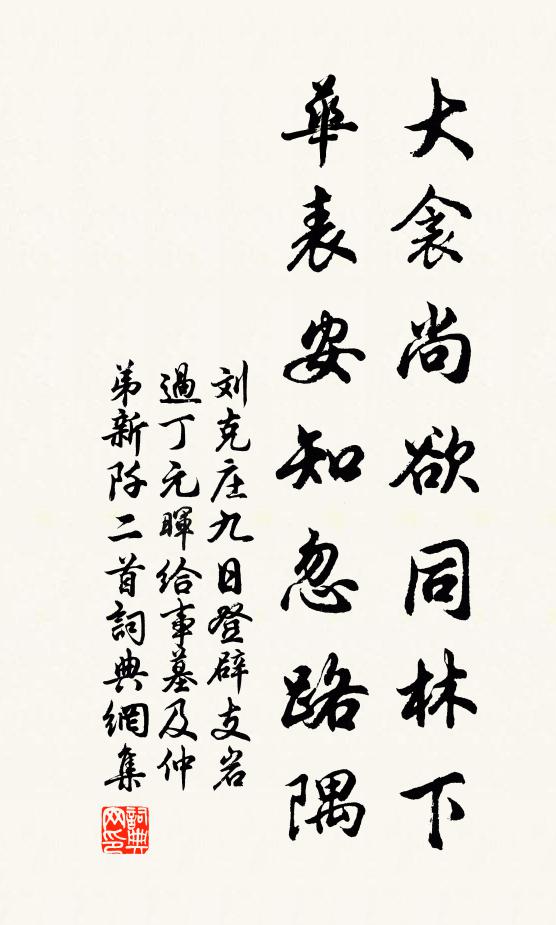 大衾尚欲同林下
華表安知忽路隅
刘克庄九日登辟支岩
過丁元暉給事墓及仲
弟新阡二首詞典網集
詞典网印